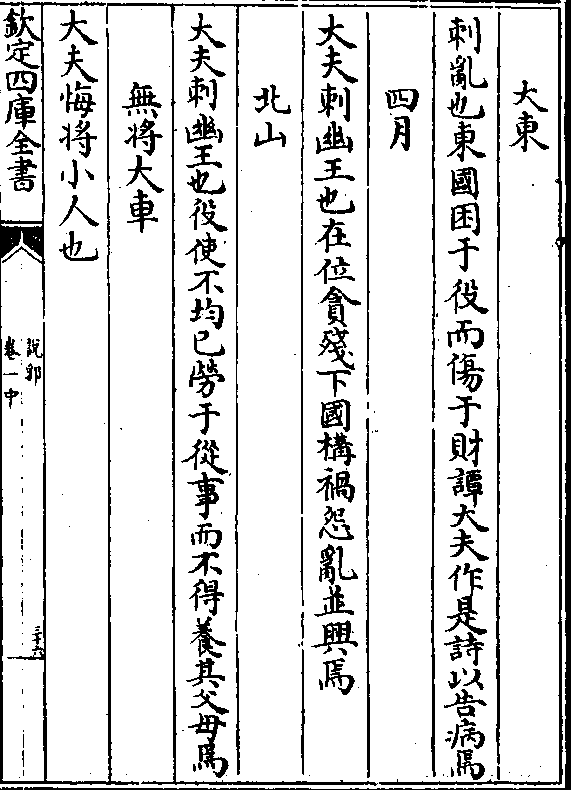 大東
刺亂也東國困于役而傷于財譚大夫作是詩以告病焉
四月
大夫刺幽王也在位貪殘下國構禍怨亂並興焉
北山
大夫刺幽王也役使不均已勞于從事而不得養其父母焉
無將大車
大夫悔將小人也
欽定四庫全書
說郛
卷一中
三十六